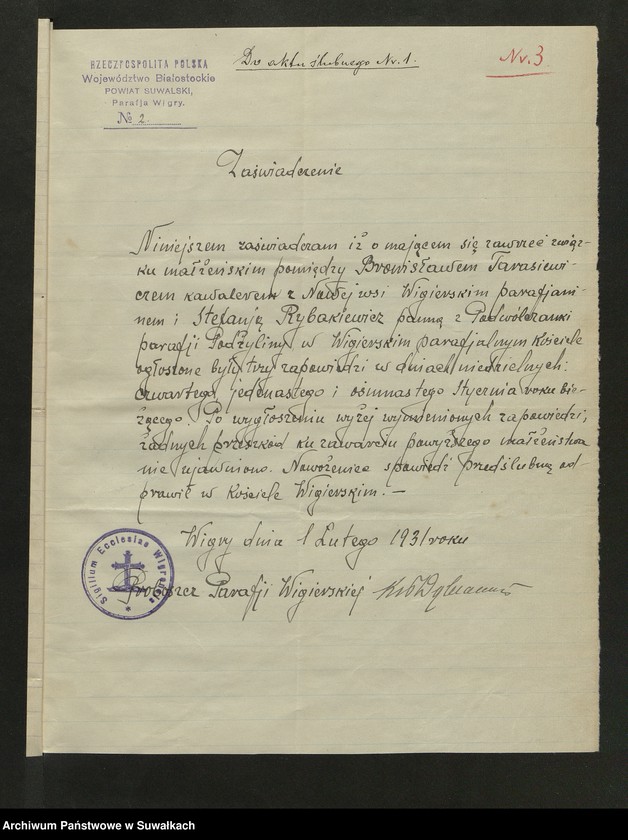 RZECZPOSPOLITA POLSKA
Województwo Białostockie
POWIAT SUWALSKI,
Parafja Wigry.
№ 2.
Do aktu ślubnego Nr. 1.
Nr. 3
Zaświadczenie
Niniejszem zaświadczam iż o mającem się zawrzeć związ-
ku małżeńskim pomiędzy Bronisławem Tarasiewi-
czem kawalerem z Nowej wsi Wigierskim parafjani-
nem i Stefanją Rybakiewicz panną z Podwólczanki
parafji Podżyliny w Wigierskim parafjalnym Kościele
ogłoszone były trzy zapowiedzi w dniach niedzielnych:
czwartego, jedenastego i ośmnastego Stycznia roku bie-
żącego. Po wygłoszeniu wyżej wymienionych zapowiedzi,
żadnych przeszkód ku zawarciu powyższego małżeństwa
nie ujawniono. Nowożeniec spowiedź przedślubną od-
prawił w Kościele Wigierskim. —
Wigry dnia 1 Lutego 1931 roku
Proboszcz Parafji Wigierskiej
Sigillum Ecclesiae Wigrensis
Archiwum Państwowe w Suwałkach